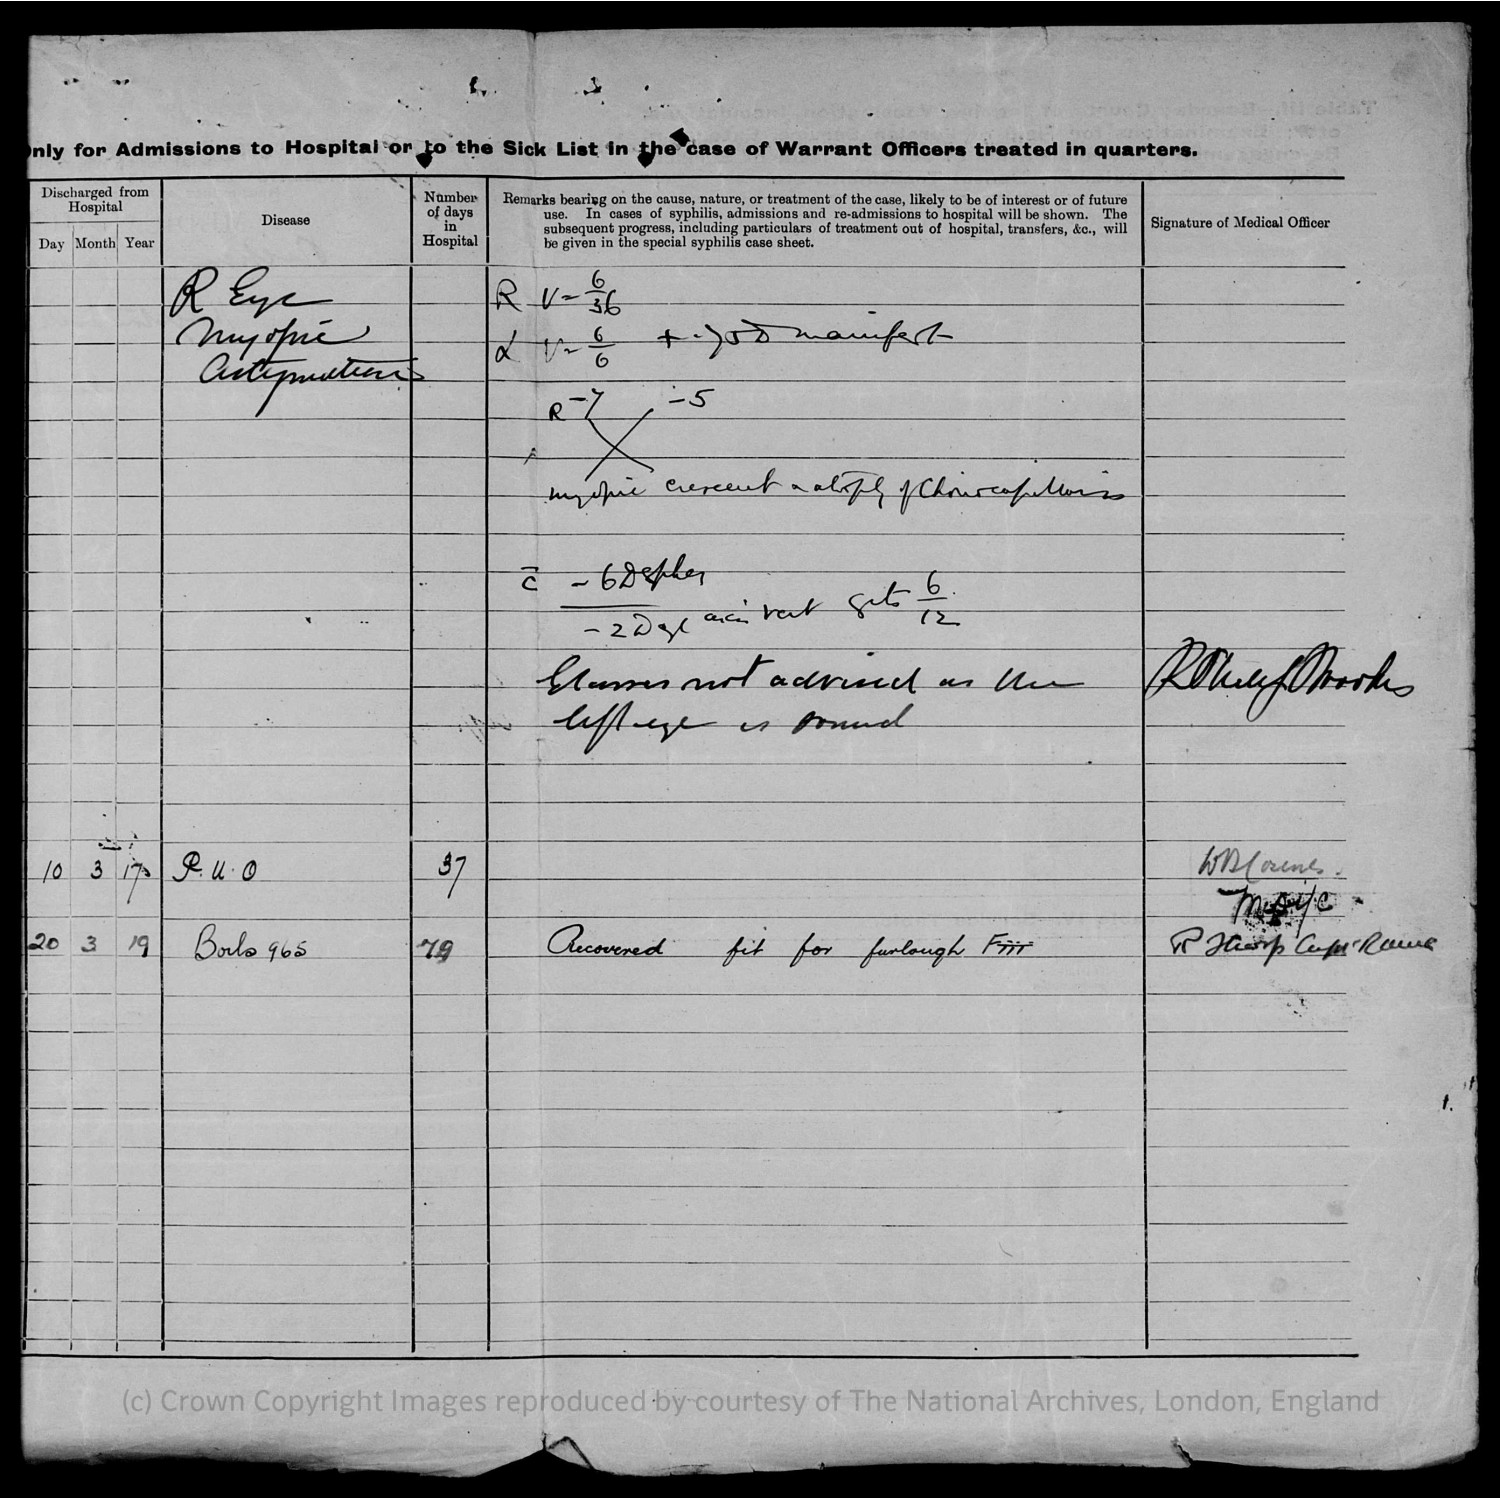 nly for Admissions to Hospital or to the Sick List in the case of Warrant Officers treated in quarters.
Discharged from Hospital
Day Month Year
Disease
Number of days in Hospital
Remarks bearing on the cause, nature, or treatment of the case, likely to be of interest or of future
use. In cases of syphilis, admissions and re-admissions to hospital will be shown. The
subsequent progress, including particulars of treatment out of hospital, transfers, &c., will
be given in the special syphilis case sheet.
Signature of Medical Officer
R Eye
Myopic
Astigmatism
R V = 6/36
L V = 6/6 + manifest
R -7 -5
myopic crescent atrophy of
c̄ -6 D spher
-2 D cyl axis vert gets 6/12
Glasses not advised as the
left eye is sound
10 3 17 P.U.O 37
20 3 19 Boils 965 79 Recovered fit for furlough F
R Capt RAMC
(c) Crown Copyright Images reproduced by courtesy of The National Archives, London, England